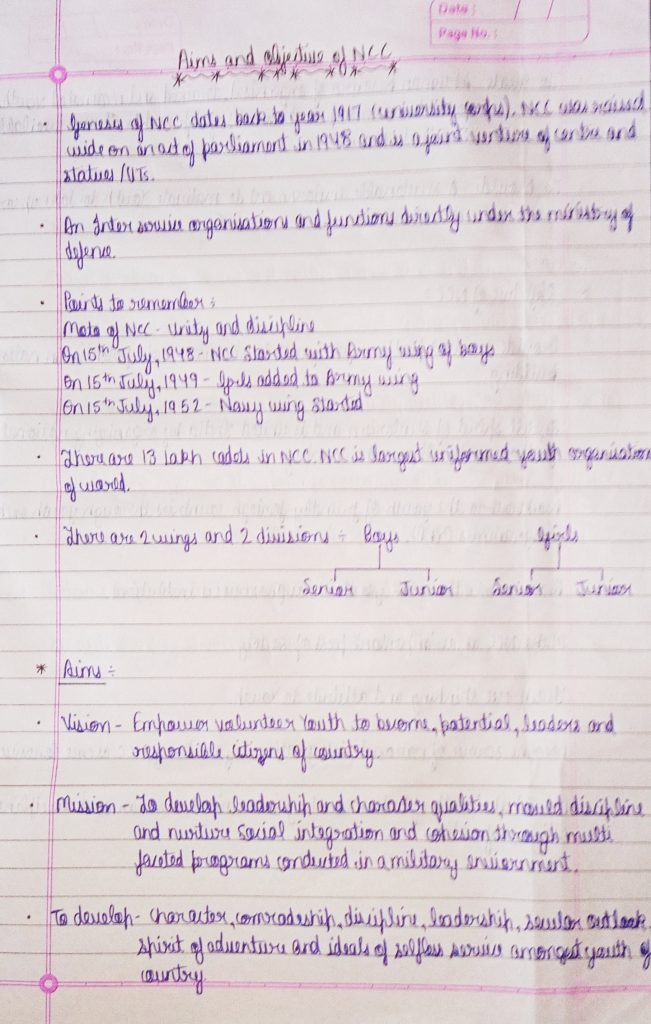 Date:
Page No.:
Aims and objective of NCC
• Genesis of NCC dates back to year 1917 (university corps). NCC was raised
wide on an act of parliament in 1948 and is a joint venture of centre and
statues/UTs.
• An Inter service organisations and functions directly under the ministry of
defence.
• Points to remember :
Moto of NCC - Unity and discipline
On 15th July, 1948 - NCC Started with Army wing of boys
On 15th July, 1949 - Girls added to Army wing
On 15th July, 1952 - Navy wing Started
• There are 13 lakh cadets in NCC. NCC is largest uniformed youth organisation
of world.
• There are 2 wings and 2 divisions ÷ Boys Girls
Senior Junior Senior Junior
* Aims ÷
• Vision - Empower volunteer Youth to become, potential, leaders and
responsible citizens of country.
• Mission - To develop leadership and character qualities, mould discipline
and nurture social integration and cohesion through multi
faceted programs conducted in a military enviornment.
• To develop - character, comradeship, discipline, leadership, secular outlook
spirit of adventure and ideals of selfless service amongst youth of
country.